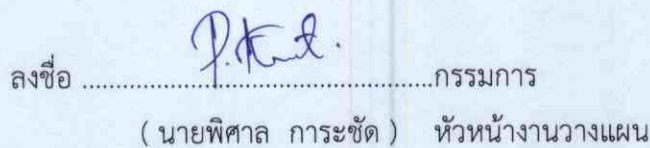 ลงชื่อ ................................................กรรมการ
( นายพิศาล การะชัด ) หัวหน้างานวางแผน